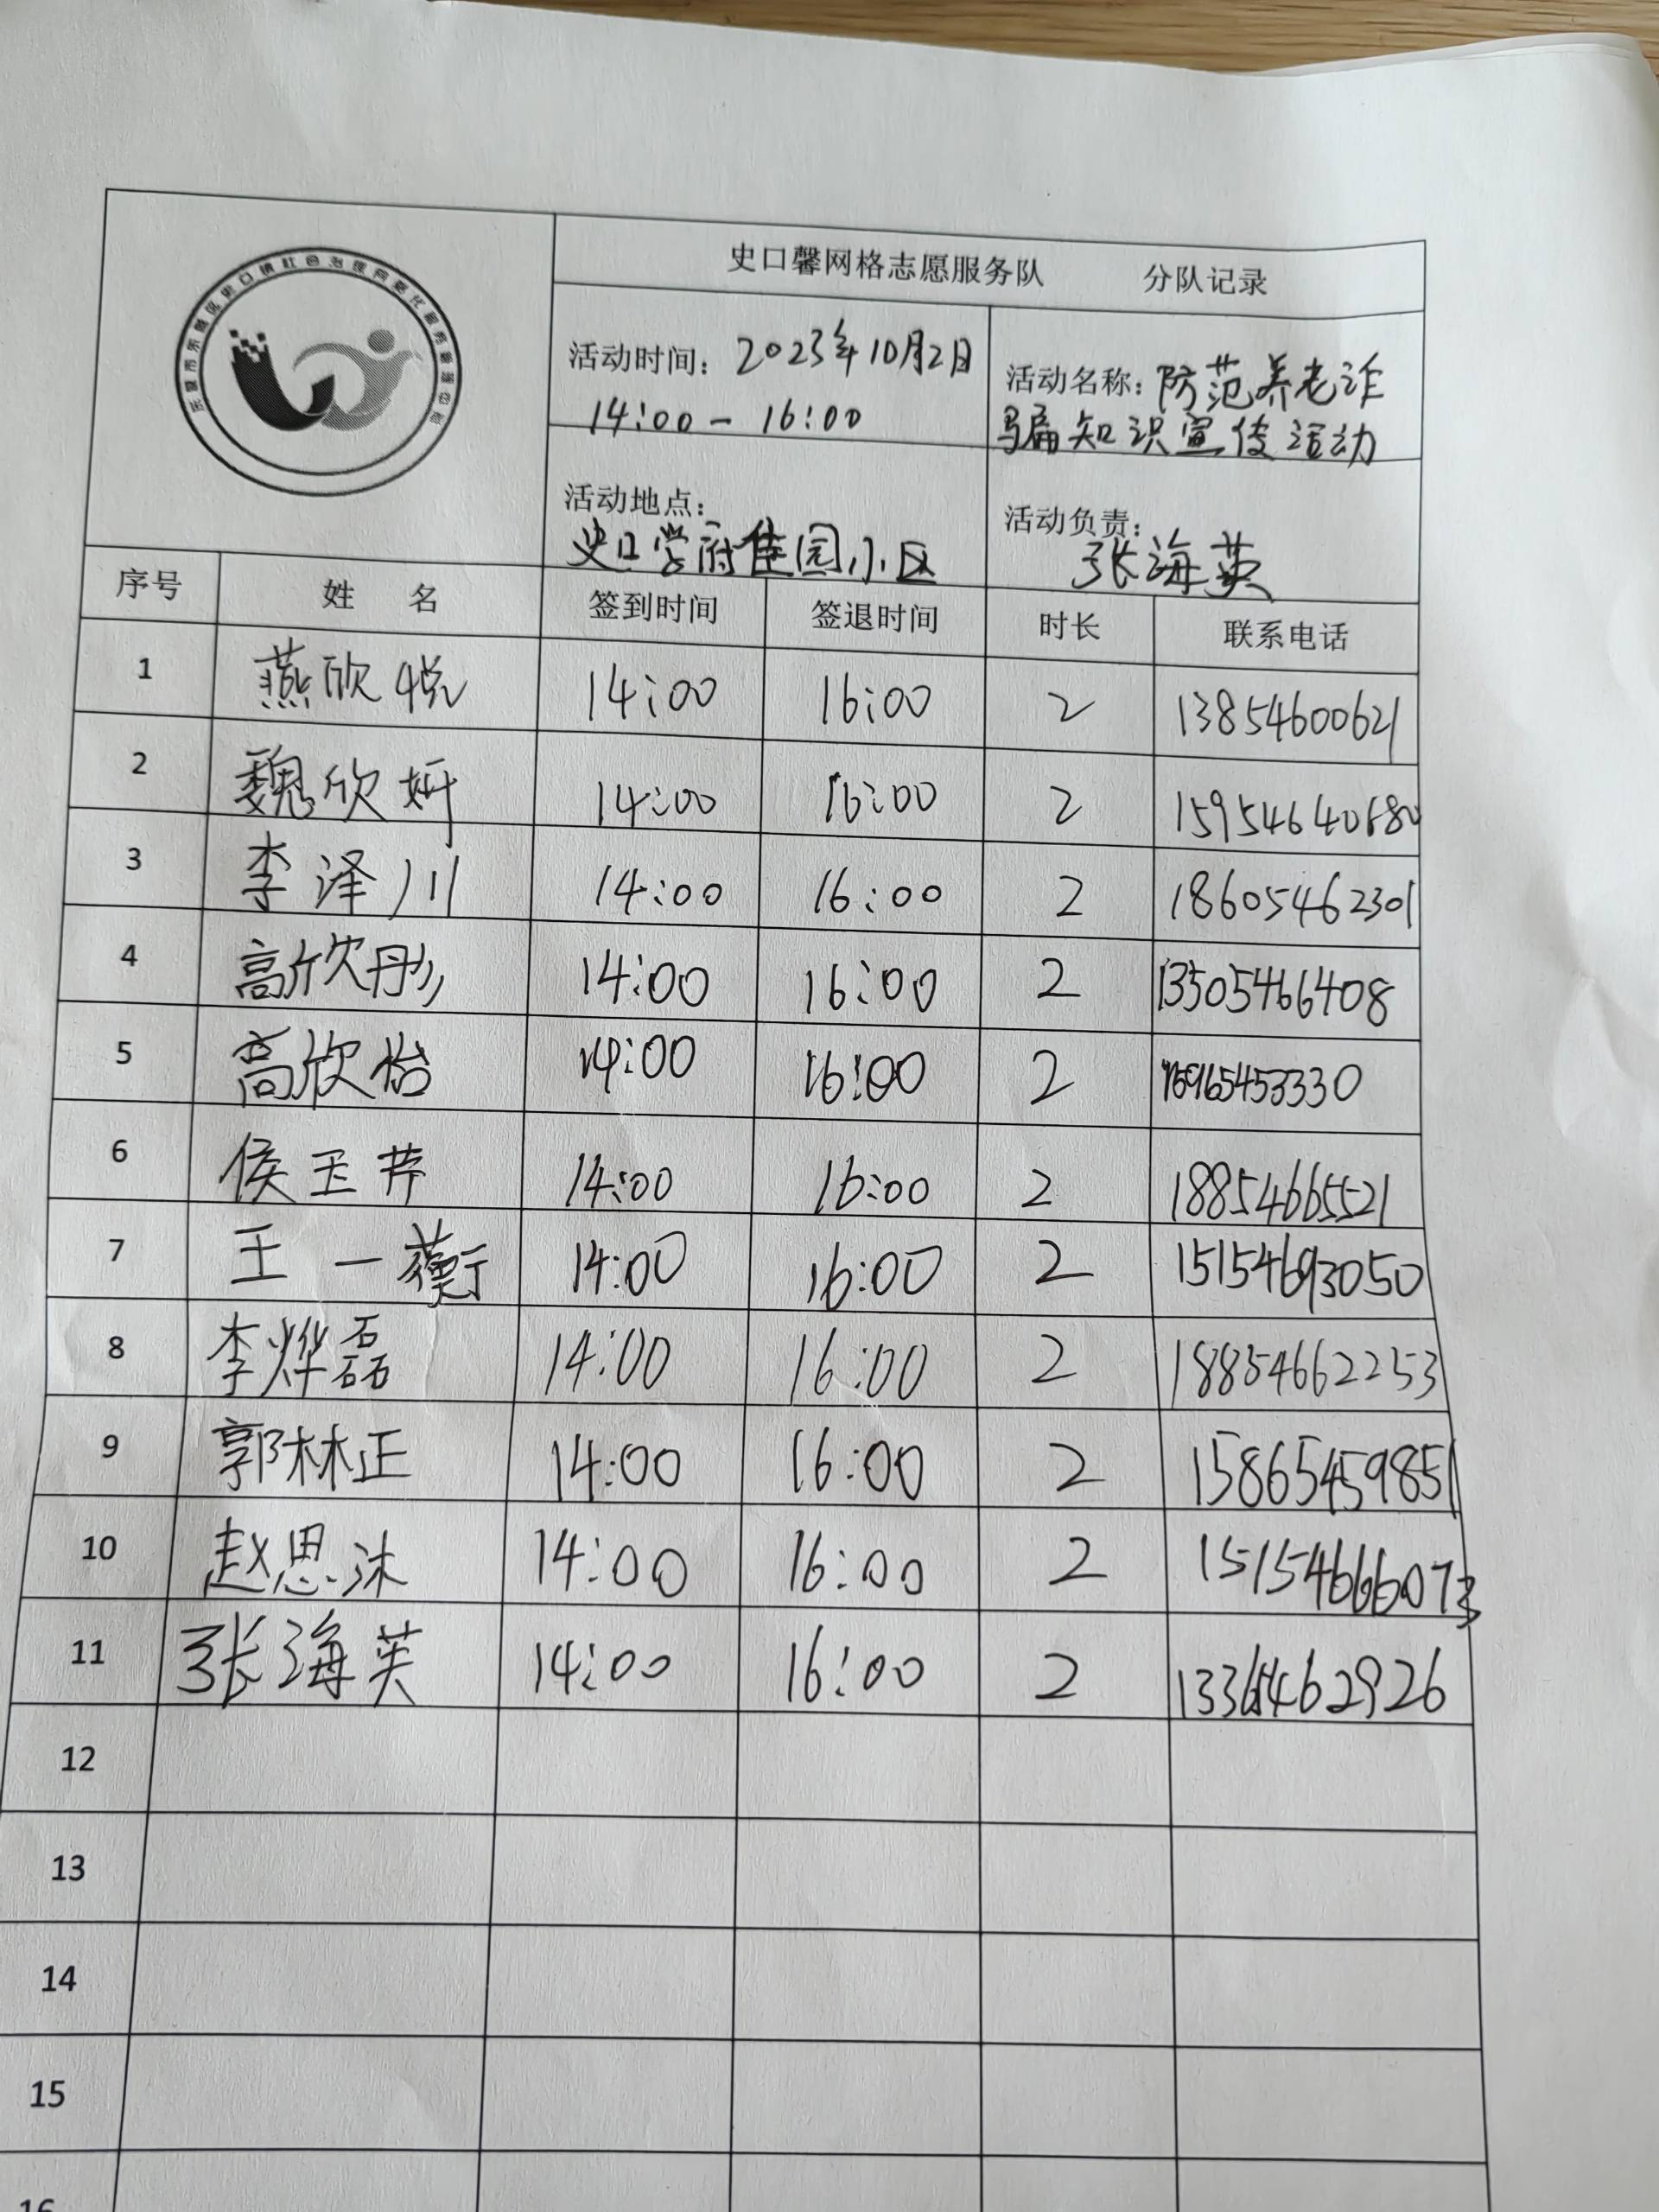 东营市东营区史口镇社会治理网格化服务管理中心
史口馨网格志愿服务队 分队记录
活动时间：2023年10月2日
14:00-16:00
活动名称：防范养老诈
骗知识宣传活动
活动地点：
史口学府佳园小区
活动负责：
张海英
序号 姓 名 签到时间 签退时间 时长 联系电话
1 燕欣悦 14:00 16:00 2 13854600621
2 魏欣妍 14:00 16:00 2 15954640680
3 李泽川 14:00 16:00 2 18605462301
4 高欣彤 14:00 16:00 2 13505466408
5 高欣怡 14:00 16:00 2 15965453330
6 侯玉芹 14:00 16:00 2 18854665521
7 王一蘅 14:00 16:00 2 15154693050
8 李烨磊 14:00 16:00 2 18854662253
9 郭林正 14:00 16:00 2 15865459851
10 赵思沐 14:00 16:00 2 15154666073
11 张海英 14:00 16:00 2
12
13
14
15
16